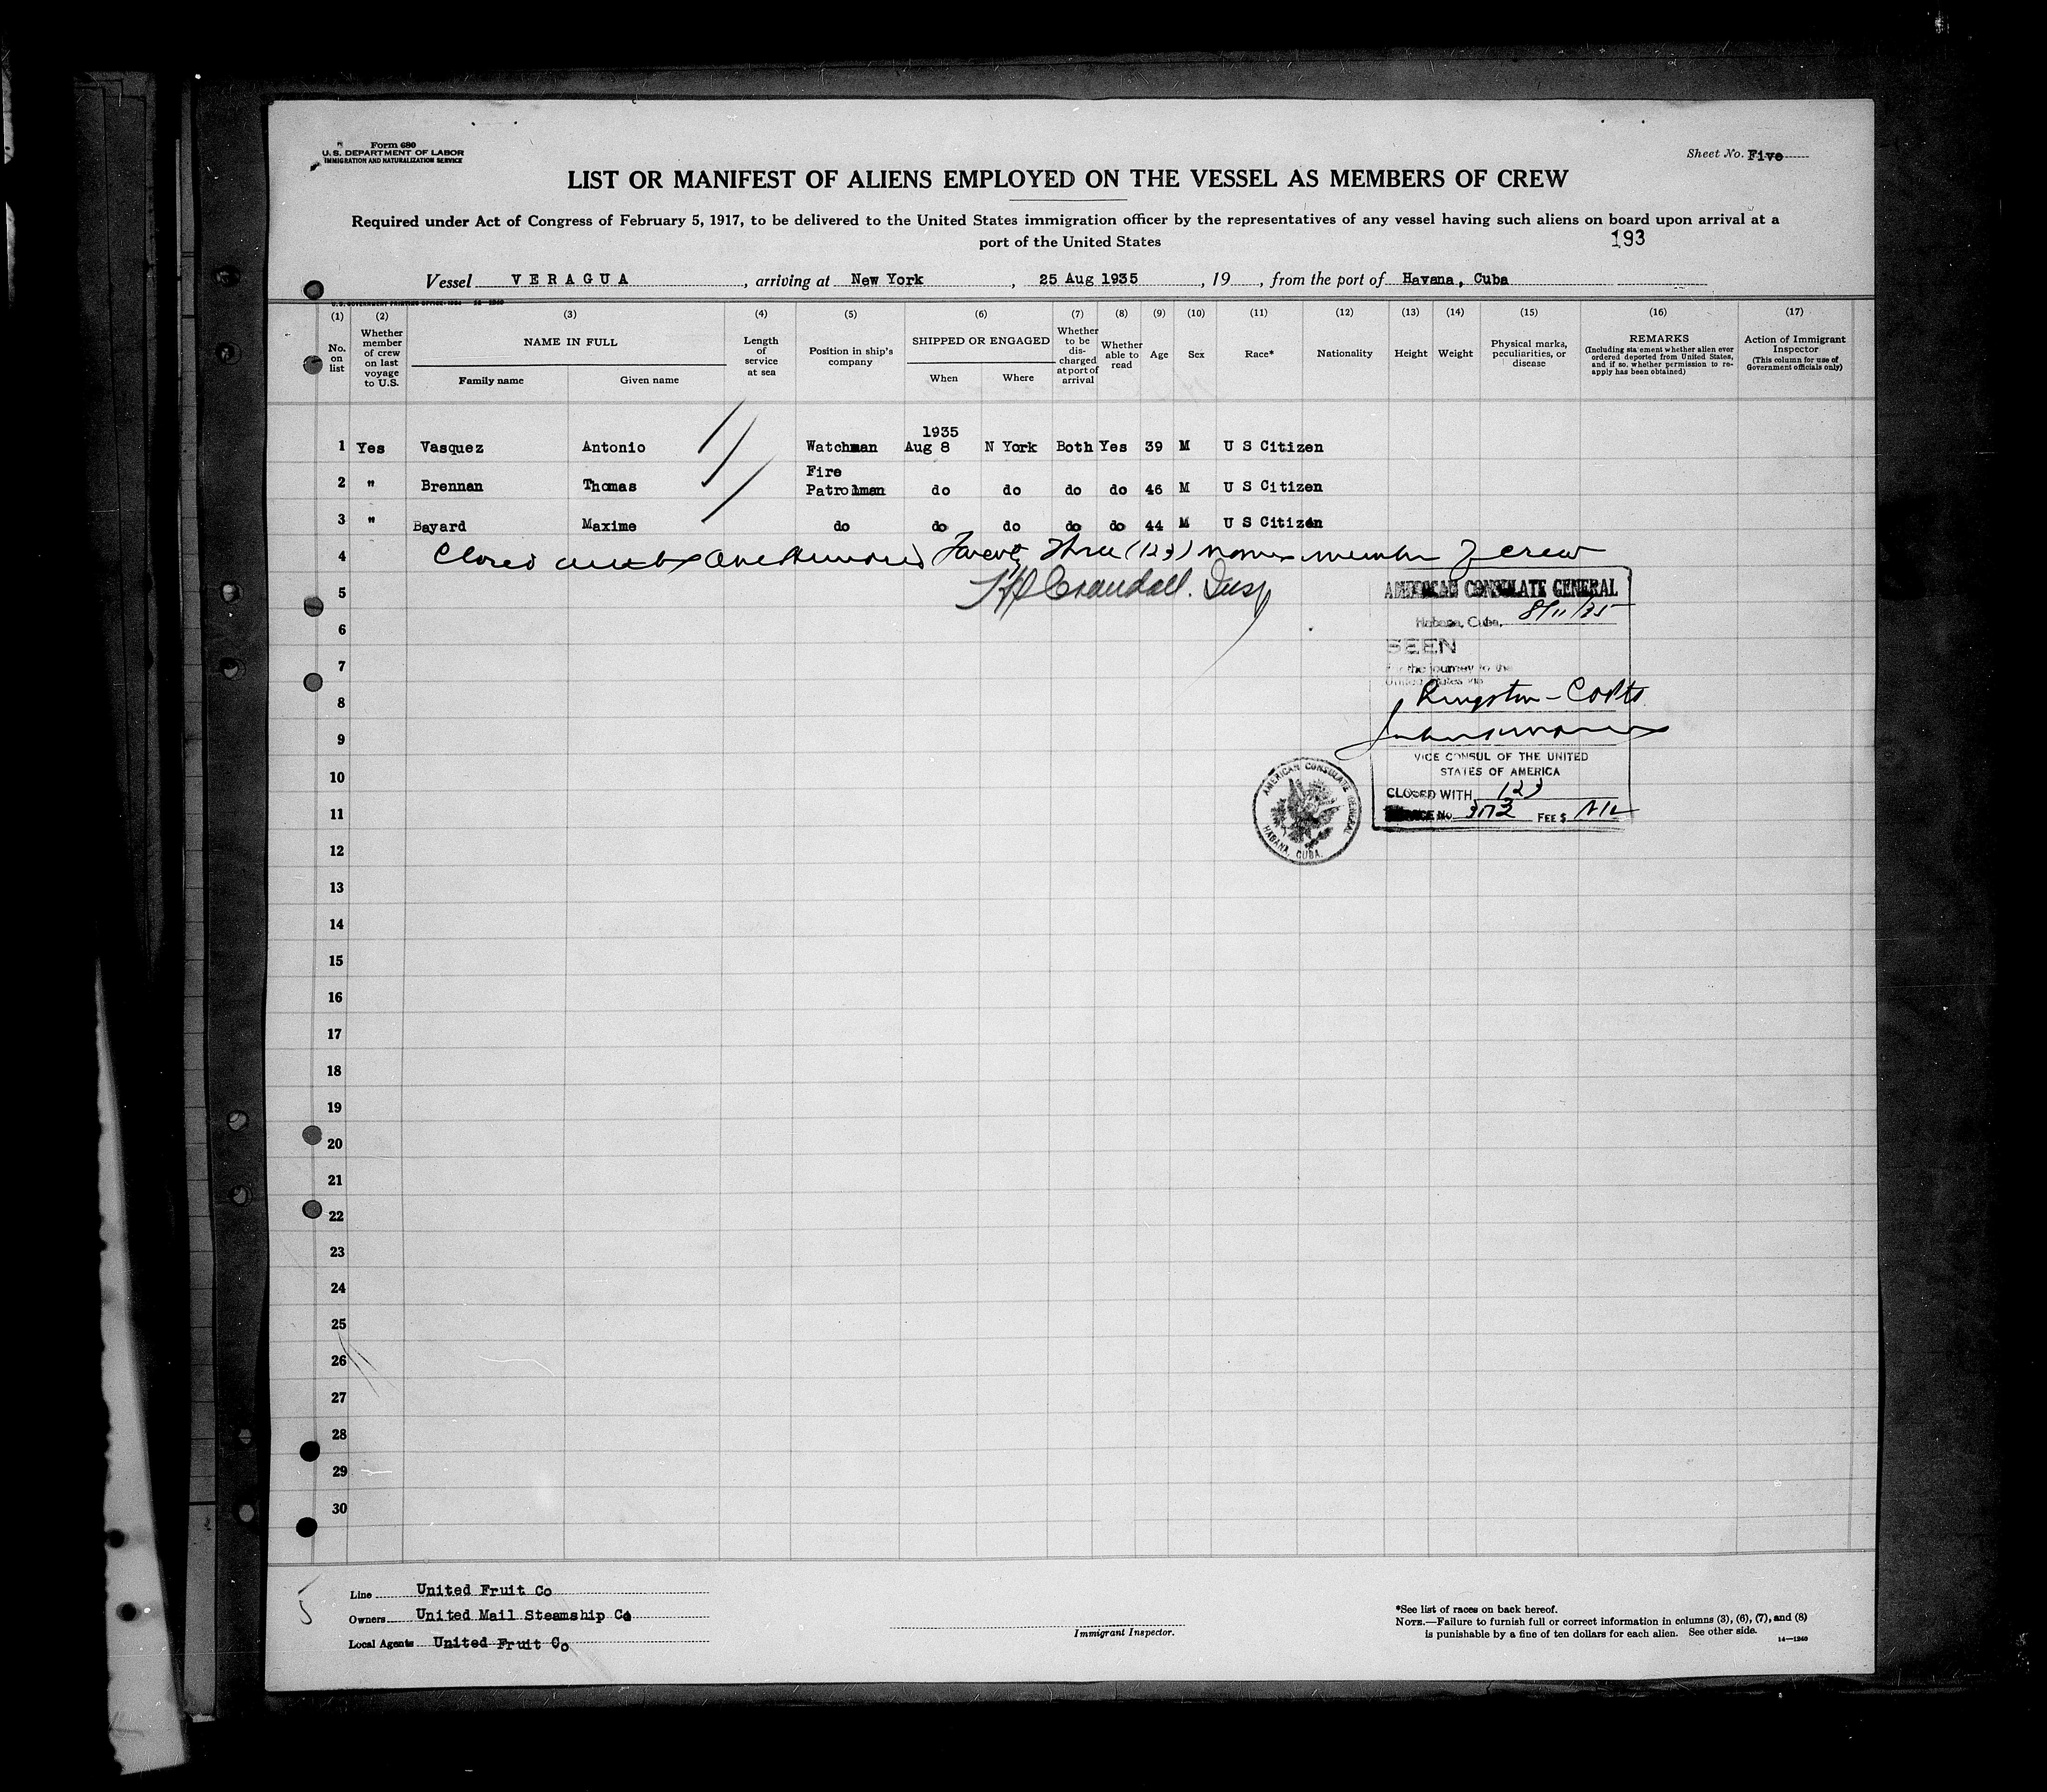 Form 680
U. S. DEPARTMENT OF LABOR
IMMIGRATION AND NATURALIZATION SERVICE
Sheet No. Five
LIST OR MANIFEST OF ALIENS EMPLOYED ON THE VESSEL AS MEMBERS OF CREW
Required under Act of Congress of February 5, 1917, to be delivered to the United States immigration officer by the representatives of any vessel having such aliens on board upon arrival at a
port of the United States
193
Vessel VERAGUA, arriving at New York, 25 Aug 1935, 19, from the port of Havana, Cuba
U. S. GOVERNMENT PRINTING OFFICE: 1934 14—1240
(1) (2) (3) (4) (5) (6) (7) (8) (9) (10) (11) (12) (13) (14) (15) (16) (17)
No. on list
Whether member of crew on last voyage to U.S.
NAME IN FULL
Family name Given name
Length of service at sea
Position in ship's company
SHIPPED OR ENGAGED
When Where
Whether to be discharged at port of arrival
Whether able to read
Age
Sex
Race*
Nationality
Height
Weight
Physical marks, peculiarities, or disease
REMARKS
(Including statement whether alien ever ordered deported from United States, and if so, whether permission to re-apply has been obtained)
Action of Immigrant Inspector
(This column for use of Government officials only)
1935
1 Yes Vasquez Antonio Watchman Aug 8 N York Both Yes 39 M U S Citizen
Fire
2 " Brennan Thomas Patrolman do do do do 46 M U S Citizen
3 " Bayard Maxime do do do do do 44 M U S Citizen
4 Closed with One Hundred Twenty Three (123) names member of crew
5 Crandall. Insp
AMERICAN CONSULATE GENERAL
Habana, Cuba, 8/11/35
6
SEEN
7
For the journey to the
United States via
8 Kingston - Colto
9
VICE CONSUL OF THE UNITED
STATES OF AMERICA
10
CLOSED WITH 123
11
SERVICE No. 3172 FEE $ Nil
AMERICAN CONSULATE GENERAL
HABANA, CUBA.
12
13
14
15
16
17
18
19
20
21
22
23
24
25
26
27
28
29
30
5
Line United Fruit Co
Owners United Mail Steamship Co
Local Agents United Fruit Co
Immigrant Inspector.
*See list of races on back hereof.
NOTE.—Failure to furnish full or correct information in columns (3), (6), (7), and (8)
is punishable by a fine of ten dollars for each alien. See other side.
14—1240